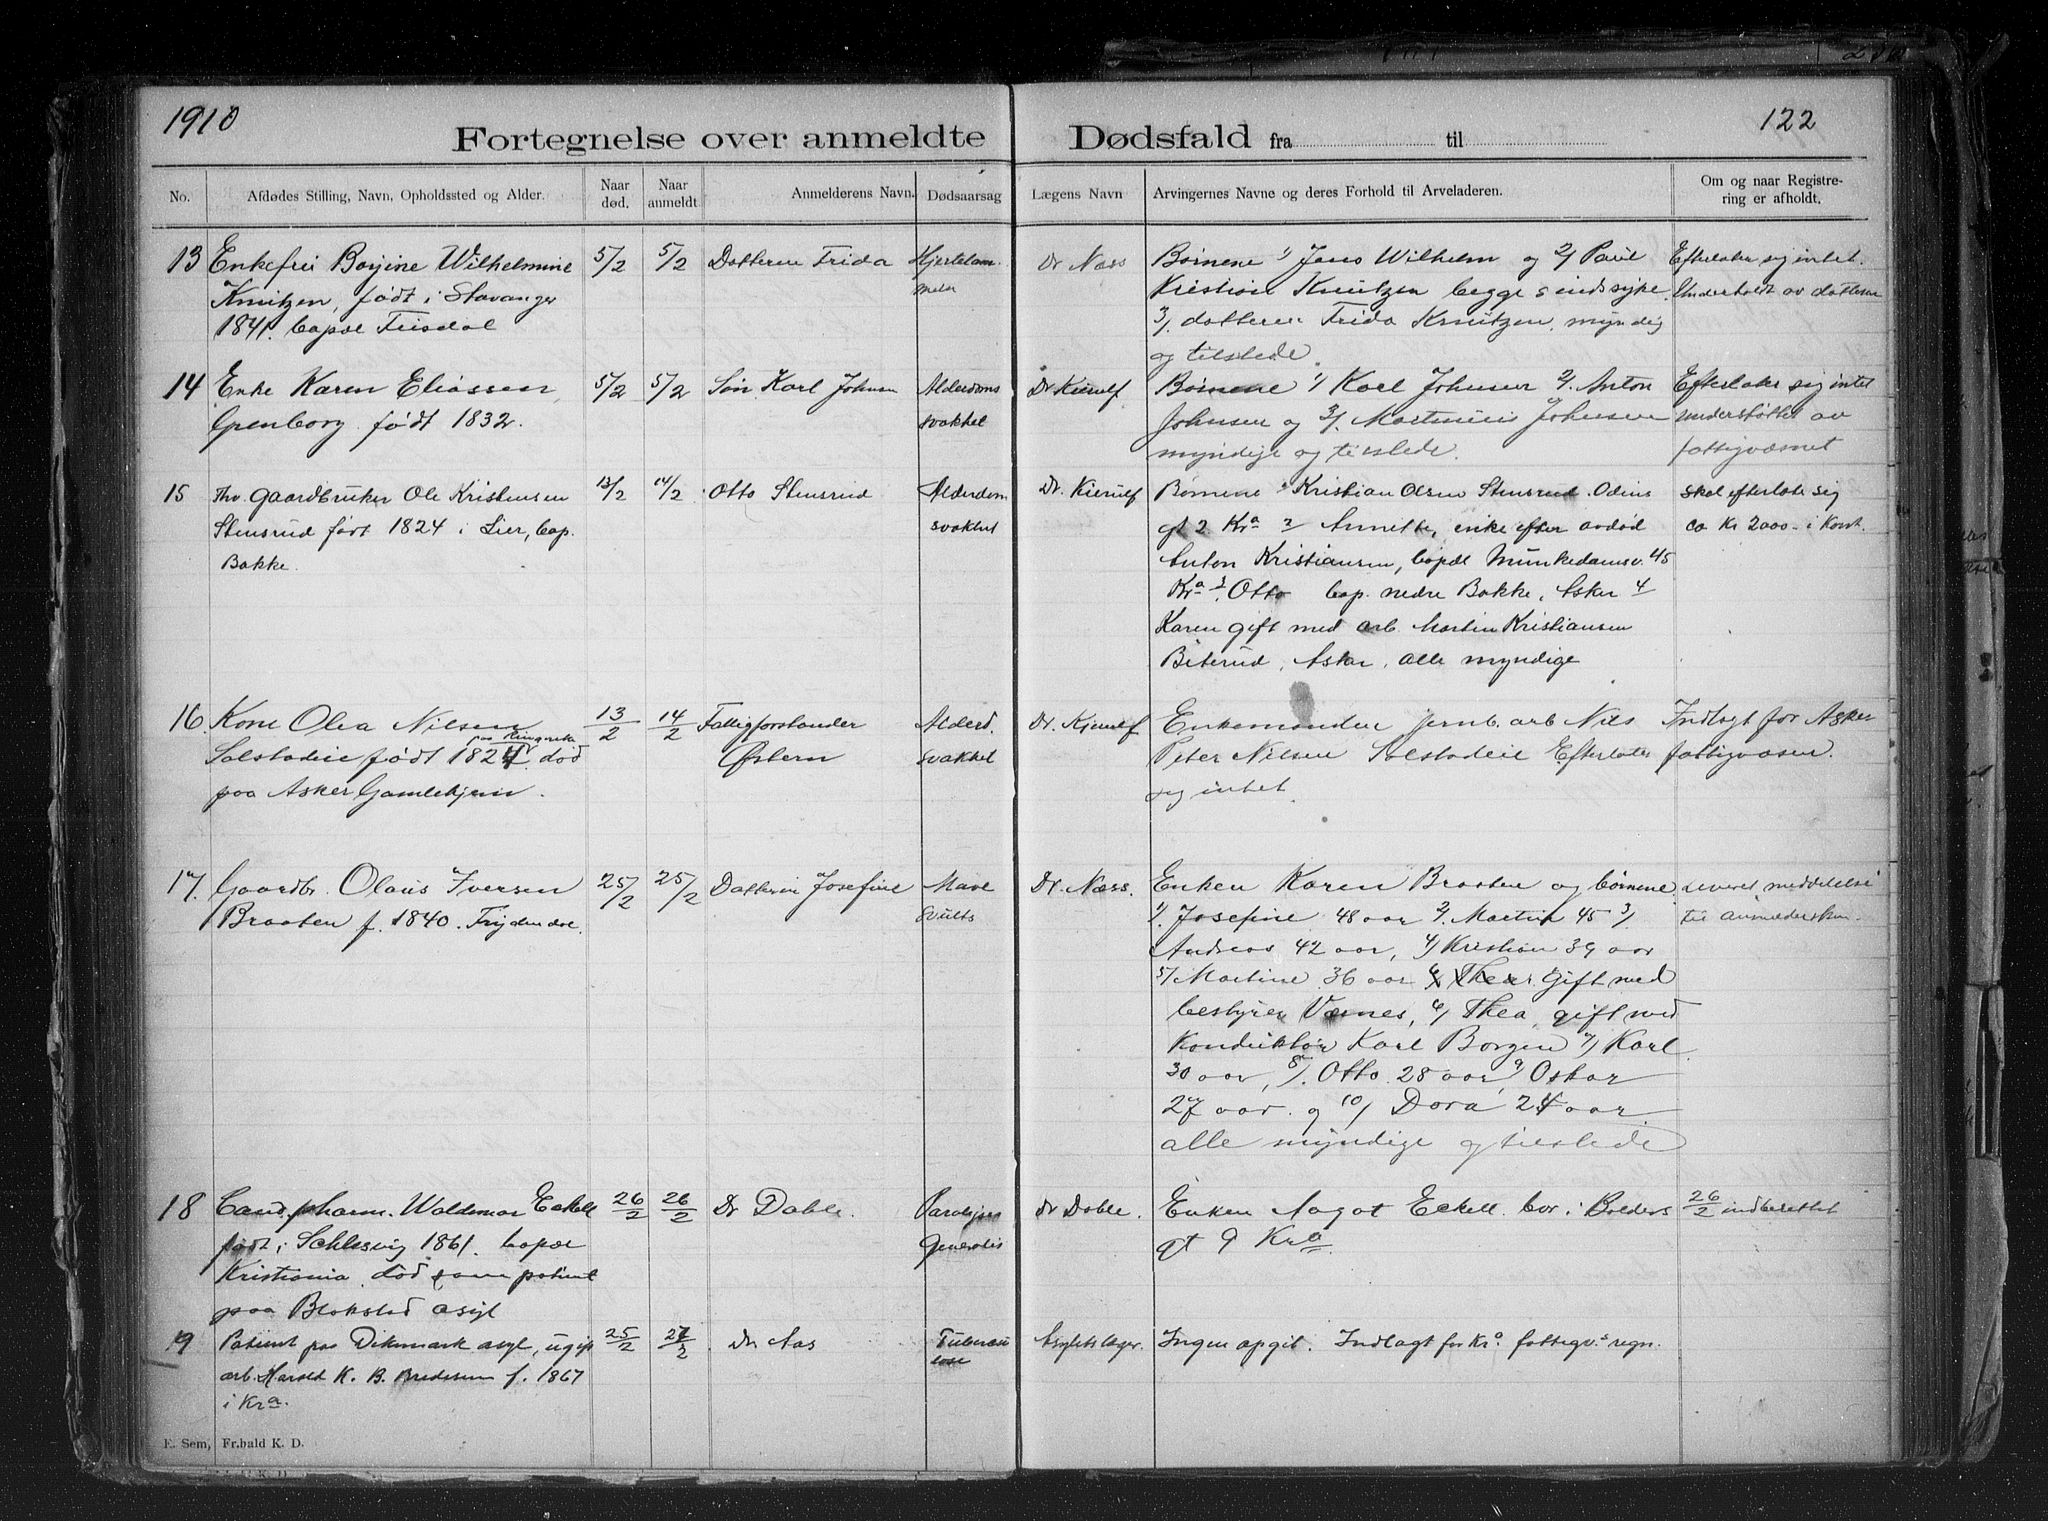 1910
122
Fortegnelse over anmeldte Dødsfald fra til
No.
Afdødes Stilling, Navn, Opholdssted og Alder.
Naar død.
Naar anmeldt.
Anmelderens Navn.
Dødsaarsag
Lægens Navn
Arvingernes Navne og deres Forhold til Arveladeren.
Om og naar Registre-
ring er afholdt.
13
Enkefru Wilhelmine
Knutzen, født i Stavanger
1841. bopæl
5/2
5/2
Datteren Frida
Hjertelam-
melse
Dr Næss
Børnene 1/ Jens Wilhelm og 2/ Paul
Kristian Knutzen begge sindssyke.
3/. datteren Frida Knutzen, myndig
og tilstede.
Efterlater sig intet.
Underholdt av datteren
14
Enke Karen Eliassen,
født 1832.
5/2
5/2
Søn Karl Johnsen
Alderdoms
svakhet
Dr Kierulf
Børnene 1/ Karl Johnsen 2/. Anton
Johnsen og 3/. Johnsen
myndige og tilstede.
Efterlater sig intet
understøttet av
fattigvæsnet
15
Fhv. gaardbruker Ole Kristensen
Stensrud født 1824 i Lier, bop.
Bakke.
13/2
14/2
Otto Stensrud
Alderdom
svakhet
Dr. Kierulf
Børnene 1 Kristian Olsen Stensrud. Odins
gt 2 Kra 2 Annette, enke efter avdød
Anton Kristiansen, bopæl Munkedamsv. 45
Kra 3. Otto bop. nedre Bakke, Asker 4
Karen gift med arb. Martin Kristiansen
Biterud, Asker, alle myndige
skal efterlate sig
ca Kr 2000 - i kont.
16
Kone Olea Nilsen
paa Ringerike
født 1824. død
paa Asker Gamlehjem.
13/2
14/2
Fattigforstander
Østern
Alderd.
svakhet
Dr. Kjerulf
Enkemanden jernb. arb Nils
Peter Nilsen Efterlater
sig intet.
Indlagt for Asker
fattigvæsen.
17.
Gaardbr. Olaus Iversen
Braaten f. 1840. Frydendal.
25/2
25/2
Datteren Josefine
Mave
svulst
Dr. Næss.
Enken Karen Braaten og børnene
1/. Josefine 48 aar 2/. Martin 45 3/
Andreas 42 aar, 4/ Kristian 39 aar
5/ Martine 36 aar 6/ Thea gift med
bestyrerVærnes, 6/ Thea, gift med
Konduktør Karl Borgen 7/ Karl
30 aar, 8/. Otto. 28 aar, 9 Oskar
27 aar. og 10/ Dora 24 aar
alle myndige og tilstede
Leveret meddelelse
til anmeldersken.
18
Cand. pharm. Waldemar Eckell
født i Schlesvig 1861. bopæl
Kristiania. død som patient
paa Blakstad asyl
26/2
26/2
Dr Dahle.
Paralysis
Generalis
Dr Dahle.
Enken Aagot Eckell. bor i Balders
gt 9 Kra
26/2 indberettet
19
Patient paa Dikemark asyl, ugift
arb. Harald K. B. Bredesen f. 1867
i Kra.
25/2
27/2
Dr. Aas
Tubercu
lose
Asylets læger.
Ingen opgit. Indlagt for Kra fattigv.s regn.
E. Sem, Fr.hald K. D.